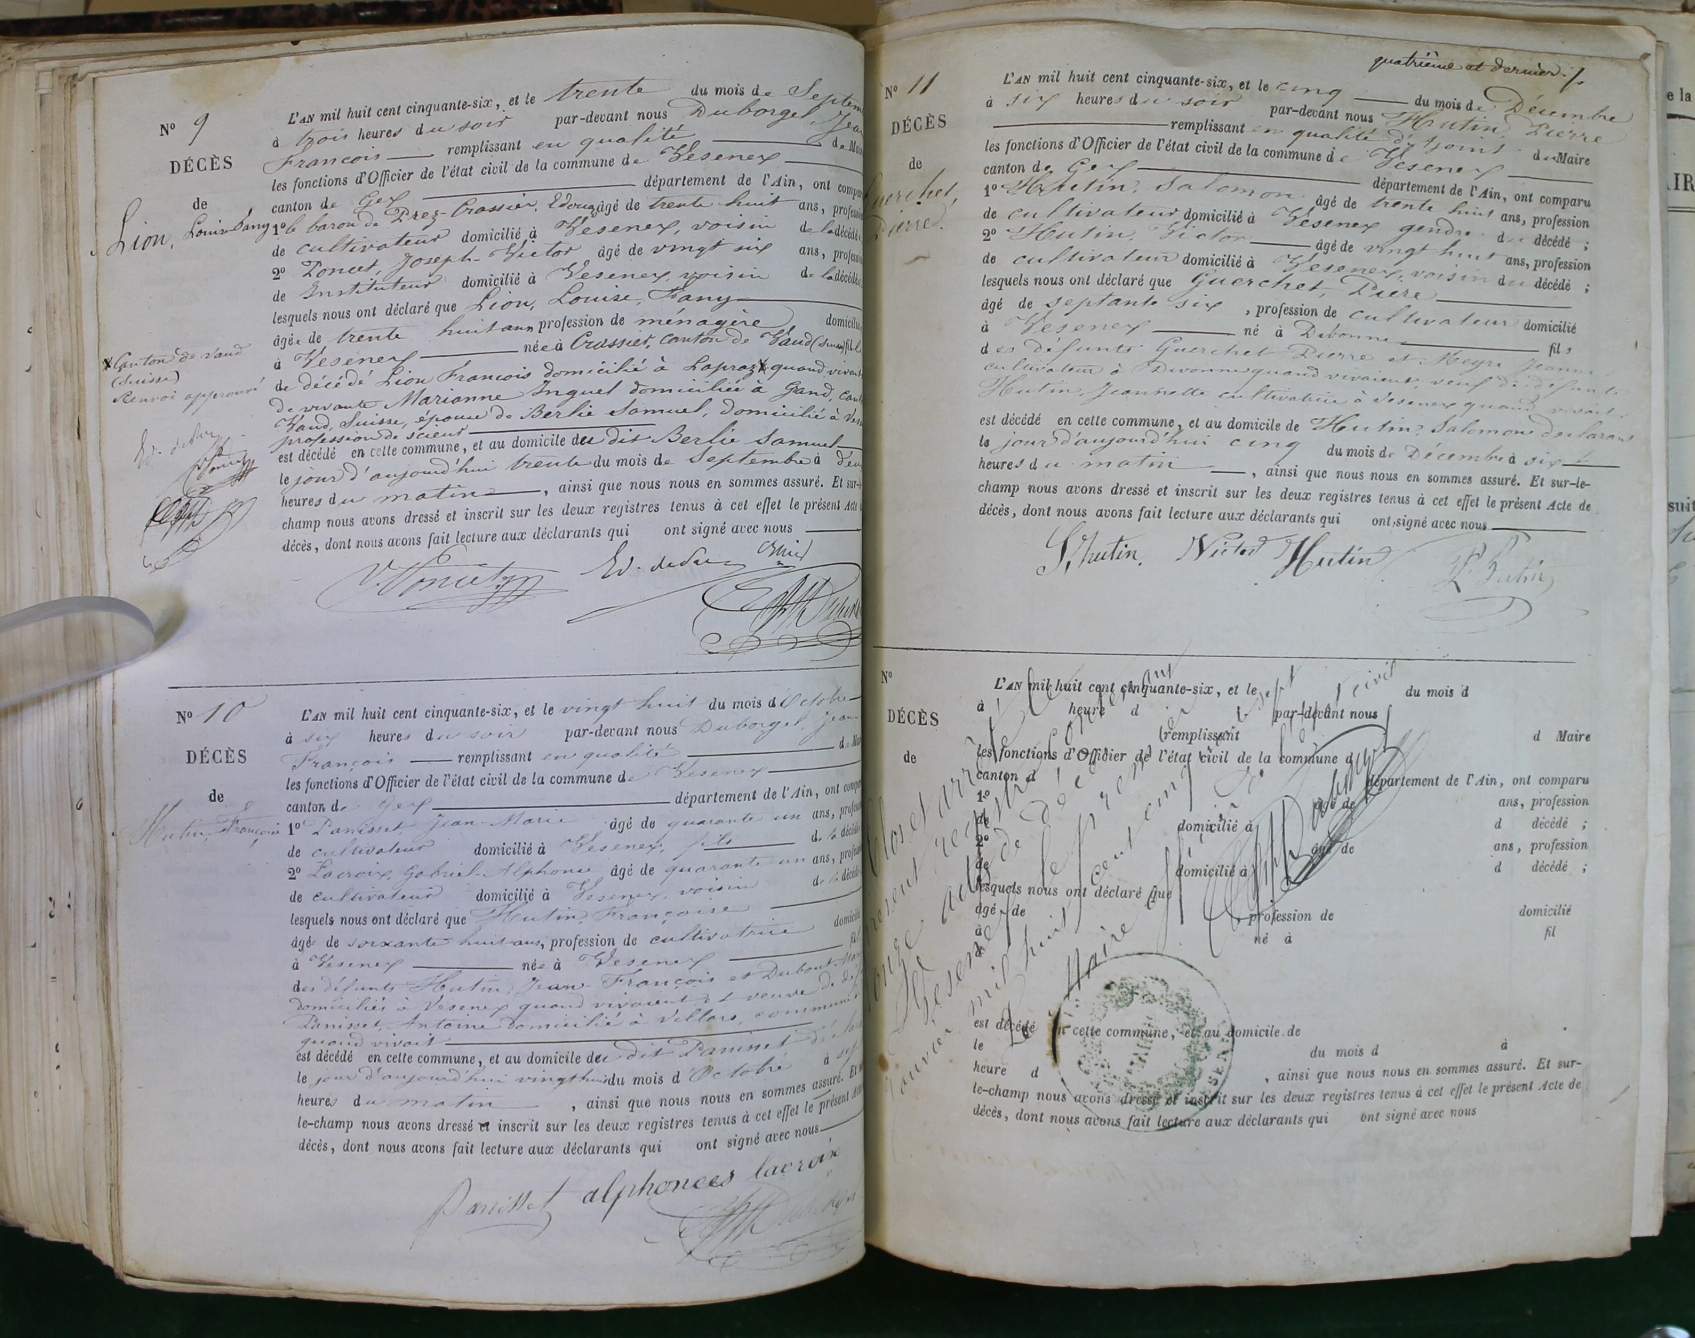 Nº 9
DÉCÈS
de
Lion, Louise Fany
L'AN mil huit cent cinquante-six, et le trente du mois de Septem
à trois heures du soir par-devant nous Duborgel, Jean
François remplissant en qualité de Ma
les fonctions d'Officier de l'état civil de la commune de Vesenex
canton de Gex département de l'Ain, ont compa
1º le baron de Prez-Crassier, Edouard âgé de trente huit ans, profession
de cultivateur domicilié à Vesenex, voisin de la décédée
2º Poncet, Joseph-Victor âgé de vingt six ans, profession
de Instituteur domicilié à Vesenex, voisin de la décédée
lesquels nous ont déclaré que Lion, Louise, Fany
âgée de trente huit ans profession de ménagère domicilié
à Vesenex née à Crassier, canton de Vaud (Suisse) fille
de décédé Lion François domicilié à Lapraz X quand vivait
de vivante Marianne Inguel domiciliée à Gand, can
Vaud, Suisse, épouse de Berlie Samuel, domicilié à Vese
profession de scieur
est décédé en cette commune, et au domicile du dit Berlie Samuel
le jour d'aujourd'hui trente du mois de Septembre à
heures du matin, ainsi que nous nous en sommes assuré. Et sur-
champ nous avons dressé et inscrit sur les deux registres tenus à cet effet le présent Acte
décès, dont nous avons fait lecture aux déclarants qui ont signé avec nous
X Canton de Vaud
(Suisse)
Renvoi approuvé
V. Poncet
Nº 10
DÉCÈS
de
Hutin, Françoise
L'AN mil huit cent cinquante-six, et le vingt huit du mois d'Octobre
à six heures du soir par-devant nous Duborgel, Jean
François remplissant en qualité de Ma
les fonctions d'Officier de l'état civil de la commune de Vesenex
canton de Gex département de l'Ain, ont compa
1º Panisset, Jean-Marie âgé de quarante un ans, profess
de cultivateur domicilié à Vesenex, fils de la décédée
2º Lacroix, Gabriel-Alphonse âgé de quarante un ans, profess
de cultivateur domicilié à Vesenex, voisin de la décédée
lesquels nous ont déclaré que Hutin Françoise
âgée de soixante huit ans, profession de cultivatrice domicilié
à Vesenex née à Vesenex fil
des défunts Hutin, Jean-François et Dubout
domiciliés à Vesenex quand vivaient et veuve de
Panisset, Antoine domicilié à Villars, commune
quand vivait
est décédé en cette commune, et au domicile du dit Panisset
le jour d'aujourd'hui vingt huit du mois d'Octobre à
heures du matin, ainsi que nous nous en sommes assuré. Et
le-champ nous avons dressé et inscrit sur les deux registres tenus à cet effet le présent
décès, dont nous avons fait lecture aux déclarants qui ont signé avec nous
Panisset alphonces lacroix
quatrième et dernier
Nº 11
DÉCÈS
de
Guerchet,
Pierre
L'AN mil huit cent cinquante-six, et le cinq du mois de Décembre
à six heures du soir par-devant nous Hutin, Pierre
remplissant en qualité d'adjoint du Maire
les fonctions d'Officier de l'état civil de la commune de Vesenex
canton de Gex département de l'Ain, ont comparu
1º Hutin, Salomon âgé de trente huit ans, profession
de cultivateur domicilié à Vesenex gendre du décédé ;
2º Hutin, Victor âgé de vingt huit ans, profession
de cultivateur domicilié à Vesenex, voisin du décédé ;
lesquels nous ont déclaré que Guerchet, Pierre
âgé de septante six, profession de cultivateur domicilié
à Vesenex né à Divonne fils
des défunts Guerchet Pierre et Meyri Jeanne
cultivateur à Divonne quand vivaient, veuf de défunte
Hutin, Jeannette cultivatrice à Vesenex quand vivait
est décédé en cette commune, et au domicile de Hutin, Salomon déclarant
le jour d'aujourd'hui cinq du mois de Décembre à six
heures du matin, ainsi que nous nous en sommes assuré. Et sur-le-
champ nous avons dressé et inscrit sur les deux registres tenus à cet effet le présent Acte de
décès, dont nous avons fait lecture aux déclarants qui ont signé avec nous
S. hutin. Victor Hutin P. Hutin
Nº
DÉCÈS
de
L'AN mil huit cent cinquante-six, et le du mois d
à heure d par-devant nous
remplissant d Maire
les fonctions d'Officier de l'état civil de la commune d
canton d département de l'Ain, ont comparu
1º âgé de ans, profession
de domicilié à d décédé ;
2º âgé de ans, profession
de domicilié à d décédé ;
lesquels nous ont déclaré que
âgé de profession de domicilié
à né à fil
d
est décédé en cette commune, et au domicile de
le du mois d à
heure d, ainsi que nous nous en sommes assuré. Et sur-
le-champ nous avons dressé et inscrit sur les deux registres tenus à cet effet le présent Acte de
décès, dont nous avons fait lecture aux déclarants qui ont signé avec nous
Clos et arrêté
présent registre
onze actes de décès
Vesenex le premier
janvier mil huit cent cinquante sept
Le Maire Officier de l'état civil